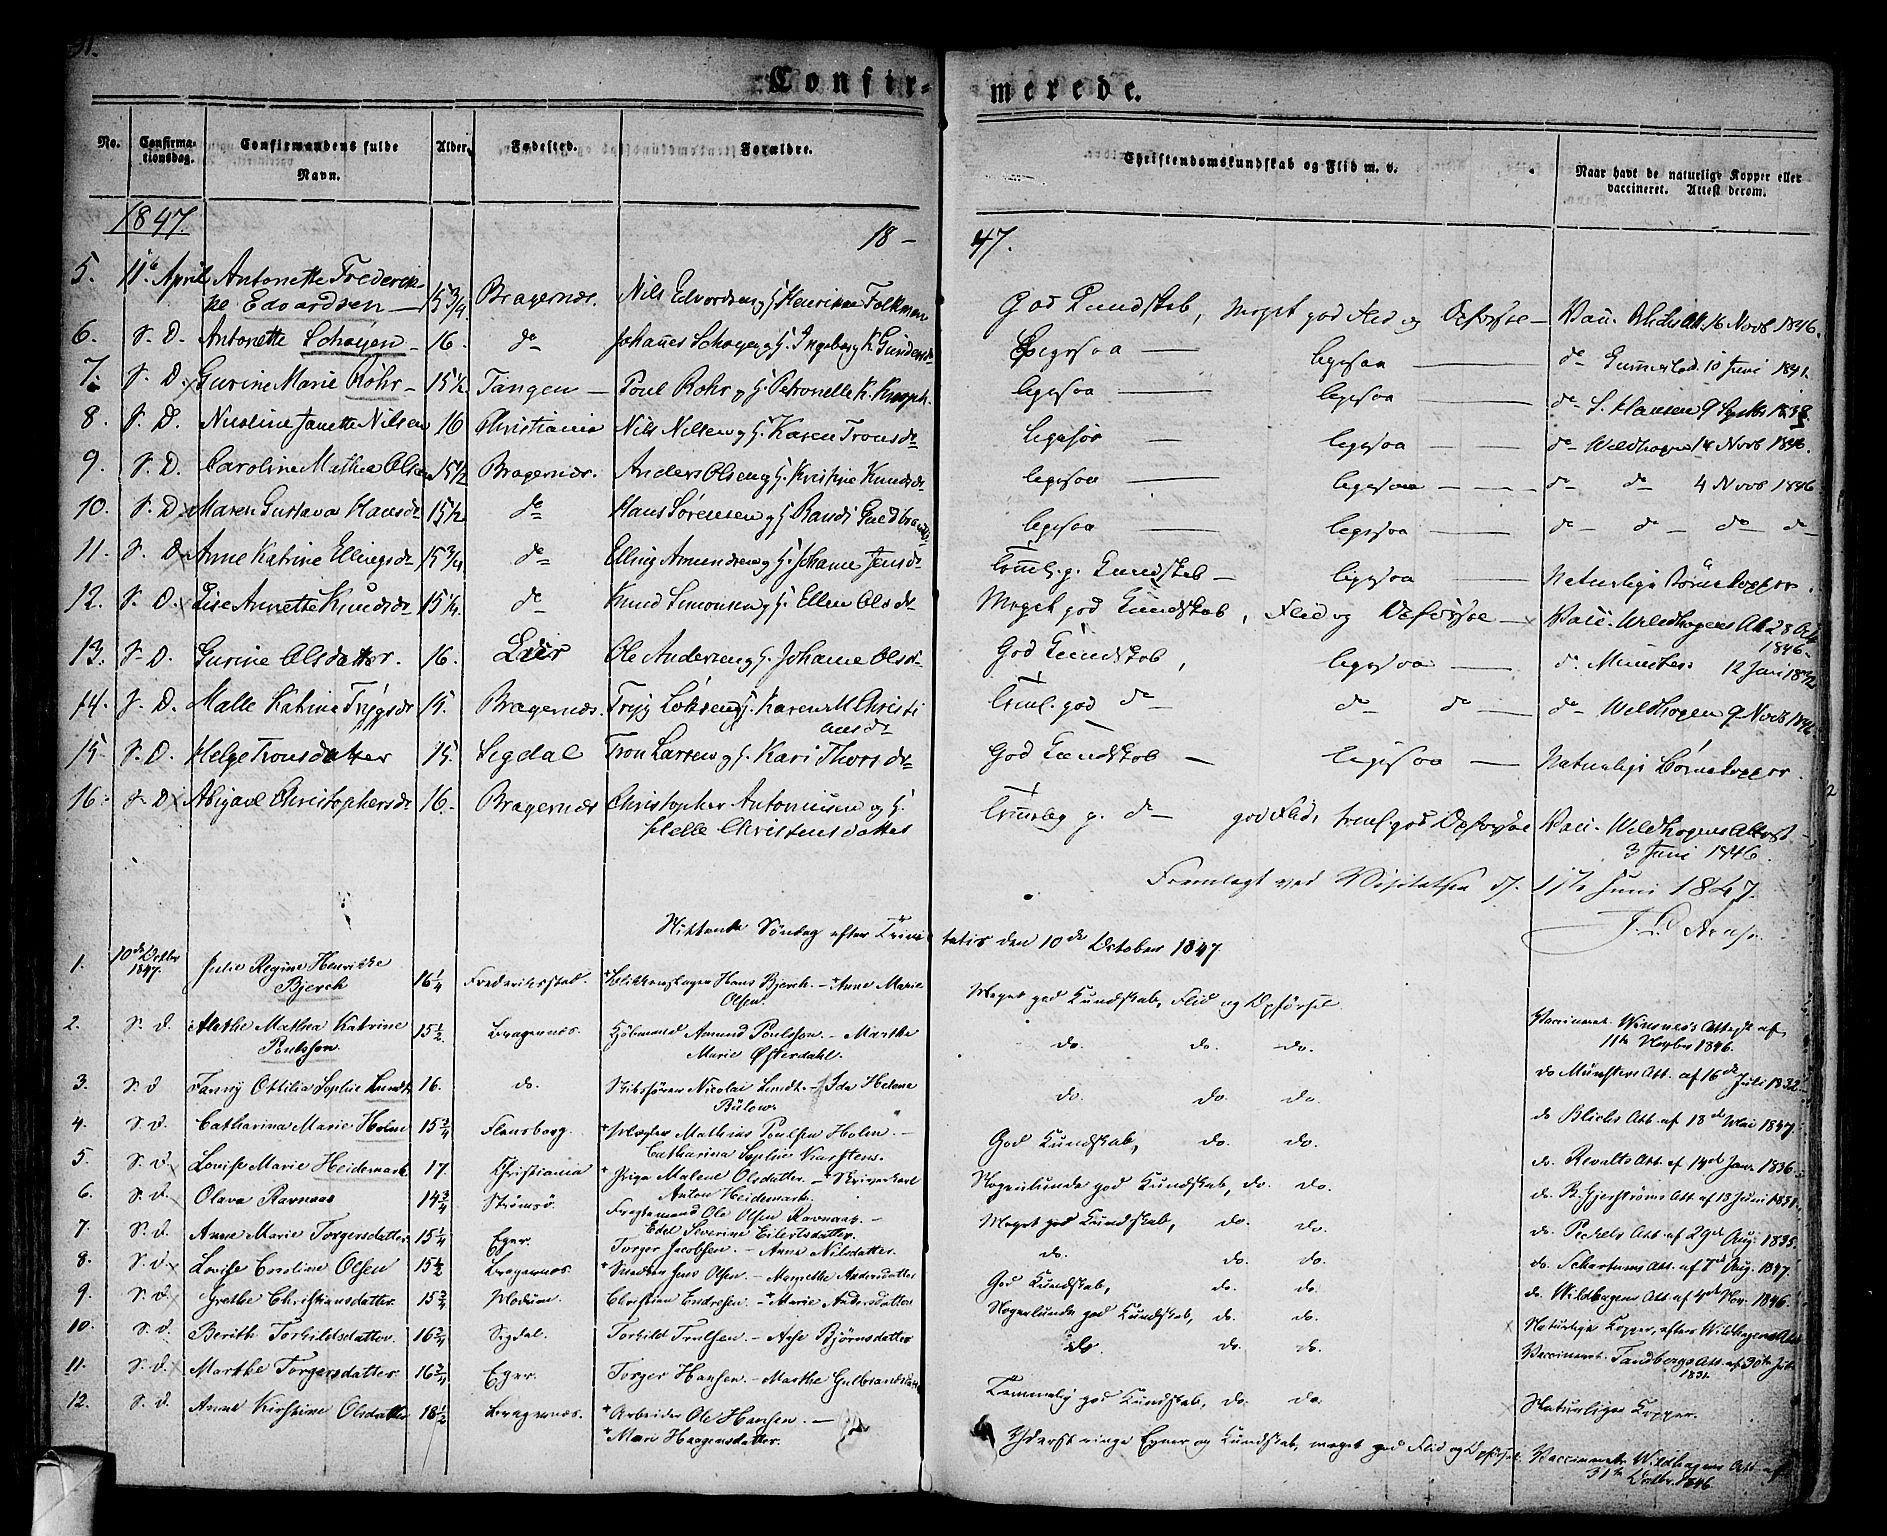 Confir-
merede.
No. Confirma-tionsdag. Confirmandens fulde Navn. Alder. Fødested. Forældre. Christendomskundskab og Flid m. v. Naar havt de naturlige Kopper eller vaccineret. Attest derom.
1847. 18- 47.
5. 11te April Antonette Frederik-
ke Edvardsen 15 3/4 Bragernæs. Nils Edvardsen og H. Henrikke Falkman God Kundskab, Meget god Flid og Opførsel Vacc. Blichs Att. 16 Novb 1846.
6. S. D. Antonette Schøyen 16. do Johannes Schøyen og H. Ingeborg K. Gundersd. ligesaa ligesaa do 10 Juni 1841.
7. S. D. Gurine Marie Rohr 15 1/2 Tangen Poul Rohr og H. Petronelle K. ligesaa ligesaa do S. Hansen 9
8. S. D. Nicoline Janette Nilsen 16 Christiania Nils Nilsen og H. Karen Tronsd. ligesaa ligesaa do Wildhagen 14 Novb 1846.
9. S. D. Caroline Mathea Olsen 15 1/2 Bragernæs. Anders Olsen og H. Kristine Knudsd. ligesaa ligesaa do do 4 Novb 1846
10. S. D. Maren Gustava Hansd. 15 1/2 do Hans Sørensen og H. Randi Guldbrandsd. ligesaa ligesaa do do do do
11. S. D. Anne Katrine Ellingsd. 15 3/4 do Elling Amundsen og H. Johanne Jensd. Teml. g. Kundskab ligesaa Naturlige Børnekopper.
12. S. D. Lise Annette Knudsd. 15 1/4. do Knud Simonsen og H. Ellen Olsd. Meget god Kundskab, Flid og Opførsel Vacc. Wildhagens Att. 28 Octb
1846.
13. S. D. Gurine Olsdatter. 16. Lier Ole Andersen og H. Johanne Olsd. God Kundskab, ligesaa do Münsters 12 Juni
14. S. D. Malle Katrine Trygsd. 15. Bragernæs. Tryg Larsen og H. Karen M. Christi
ansd. Teml. god do do do do Wildhagen 9 Novb 1846
15. S. D. Helge Tronsdatter 15. Segdal Tron Larsen og H. Kari Thorsd. God Kundskab ligesaa Naturlige Børnekopper.
16. S. D. Abigael Christophersd. 16. Bragernæs Christopher Antonisen og H.
Helle Christensdatter Temlig g. do god Flid, teml. god Opførsel Vacc. Wildhagens Attest
3 Juni 1846.
Fremlagt ved Visitatsen d. 11te Juni 1847.
Nittende Søndag efter Trini tatis den 10de October 1847.
1. 10de Octbr 1847. Julie Regine Henrikke
Bjerck 16 1/4 Frederiksstad. Blikkenslager Hans Bjerck. - Anne Marie
Olsen. Meget god Kundskab, Flid og Opførsel.
2. S. d. Alethe Mathea Katrine
Poulsson. 15 1/2 Bragernæs. Kjøbmand Amund Poulsson. - Marthe
Marie Østerdahl. do. do. do. Vaccineret. Winsnes's Attest af
11te Novbr 1846.
3. S. d Fanny Ottilia Sophie Lundt 16. do. Skibsfører Nicolai Lundt. - Ida Helene
Bülow. do. do. do. do Münsters Att. af 16de Juli 1832.
4. S. d. Catharina Marie Holm 15 3/4 Flensborg. Mægler Mathias Poulsen Holm. -
Catharina Sophie Karstens. God Kundskab, do. do. do Blichs Att. af 18de Mai 1847.
5. S. d. Lovise Marie Heidemark 17. Christiania Pige Malene Olsdatter. - Skriverkarl
Anton Heidemark. Nogenlunde god Kundskab, do. do. do. Revalts Att. af 14de Jan. 1836.
6. S. d. Olava Ravnaas 14 3/4 Strømsø. Fragtemand Ole Olsen Ravnaas. -
Edel Severine Eilertsdatter. Meget god Kundskab, do. do. do. B. Gjerstrøms Att. af 13 Juni 1831.
7. S. d. Anne Marie Torgersdatter 15 1/4 Eger. Torger Jacobsen. - Anne Nilsdatter. do. do. do. do. Peckels Att. af 29de Aug. 1835.
8. S. d. Lovise Caroline Olsen 15 1/2 Bragernæs. Snedker Jens Olsen. - Marethe Andersdatter God Kundskab, do. do. do. Schartums Att. af 7de Aug. 1847.
9. S. d. Grethe Christiansdatter. 15 3/4 Modum. Christian Endresen. - Marie Andersdatter Nogenlunde god Kundskab, do. do. do. Wildhagens Att. af 4de Nov. 1846.
10. S. d. Berith Torkildsdatter. 16 3/4 Sigdal. Torkild Trulsen. - Aase Bjørnsdatter do. do. do. Naturlige Kopper, efter Wildhagens Att.
11. S. d. Marthe Torgersdatter. 16 3/4 Eger. Torger Hansen. - Marthe Gulbrandsdatter Temmelig god Kundskab, do. do. Vaccineret. Tandbergs Att. af 30te
1831.
12. S. d. Anne Kirstine Olsdatter 18 1/2 Bragernæs. Arbeider Ole Hansen. -
Mari Haagensdatter. Yderst ringe Evner og Kundskab, meget god Flid og Opførsel. Naturlige Kopper.
Vaccineret. Wildhagens Att. af
31te Octbr. 1846